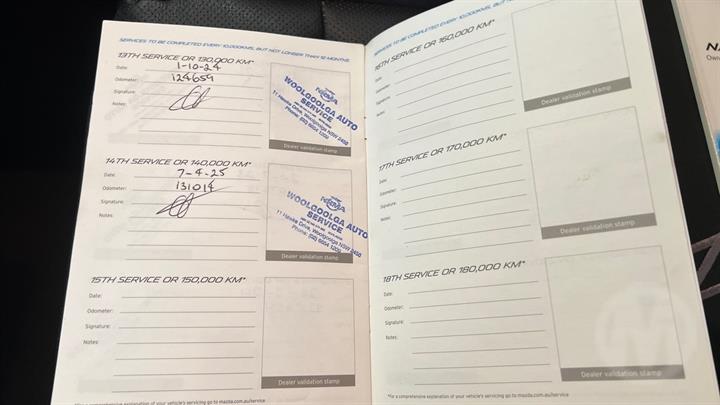 SERVICES TO BE COMPLETED EVERY 10,000KMS, BUT NOT LONGER THAN 12 MONTHS.
13TH SERVICE OR 130,000 KM*
Date: 1-10-24
Odometer: 124659
Signature:
Notes:
WOOLGOOLGA AUTO
SERVICE
11 Hawke Drive, Woolgoolga NSW 2450
Phone: (02) 6654 1206
Dealer validation stamp
14TH SERVICE OR 140,000 KM*
Date: 7-4-25
Odometer: 131014
Signature:
Notes:
WOOLGOOLGA AUTO
SERVICE
11 Hawke Drive, Woolgoolga NSW 2450
Phone: (02) 6654 1206
Dealer validation stamp
15TH SERVICE OR 150,000 KM*
Date:
Odometer:
Signature:
Notes:
Dealer validation stamp
*For a comprehensive explanation of your vehicle's servicing go to mazda.com.au/service
SERVICES TO BE COMPLETED EVERY 10,000KMS, BUT NOT
16TH SERVICE OR 160,000 KM*
Date:
Odometer:
Signature:
Notes:
Dealer validation stamp
17TH SERVICE OR 170,000 KM*
Date:
Odometer:
Signature:
Notes:
Dealer validation stamp
18TH SERVICE OR 180,000 KM*
Date:
Odometer:
Signature:
Notes:
Dealer validation stamp
*For a comprehensive explanation of your vehicle's servicing go to mazda.com.au/service